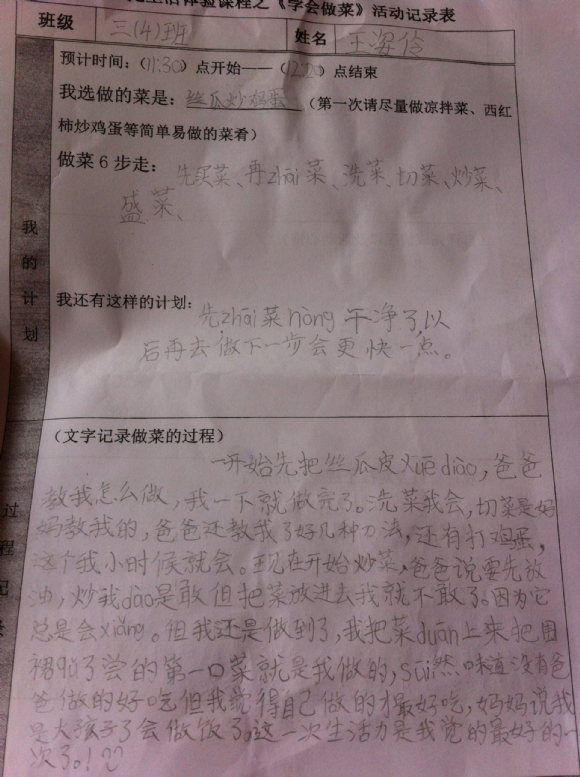 生活体验课程之《学会做菜》活动记录表
班级 三(4)班 姓名 王姿伶
预计时间：（11:30）点开始——（12:20）点结束
我选做的菜是：丝瓜炒鸡蛋（第一次请尽量做凉拌菜、西红
柿炒鸡蛋等简单易做的菜肴）
做菜6步走：先买菜、再zhāi菜、洗菜、切菜、炒菜、
盛菜、
我的计划
我还有这样的计划：
先zhāi菜nòng干净了,以
后再去做下一步会更快一点。
（文字记录做菜的过程）
一开始先把丝瓜皮xuē diào，爸爸
教我怎么做，我一下就做完了。洗菜我会，切菜是妈
妈教我的，爸爸还教我了好几种刀法，还有打鸡蛋，
这个我小时候就会。现在开始炒菜，爸爸说要先放
油，炒我dào是敢但把菜放进去我就不敢了。因为它
总是会xiǎng。但我还是做到了，我把菜duān上来把围
裙
了尝的第一口菜就是我做的，suī然味道没有爸
爸做的好吃但我觉得自己做的才最好吃，妈妈说我
是大孩子了会做饭了。这一次生活力是我觉的最好的一
次了。!
过程记